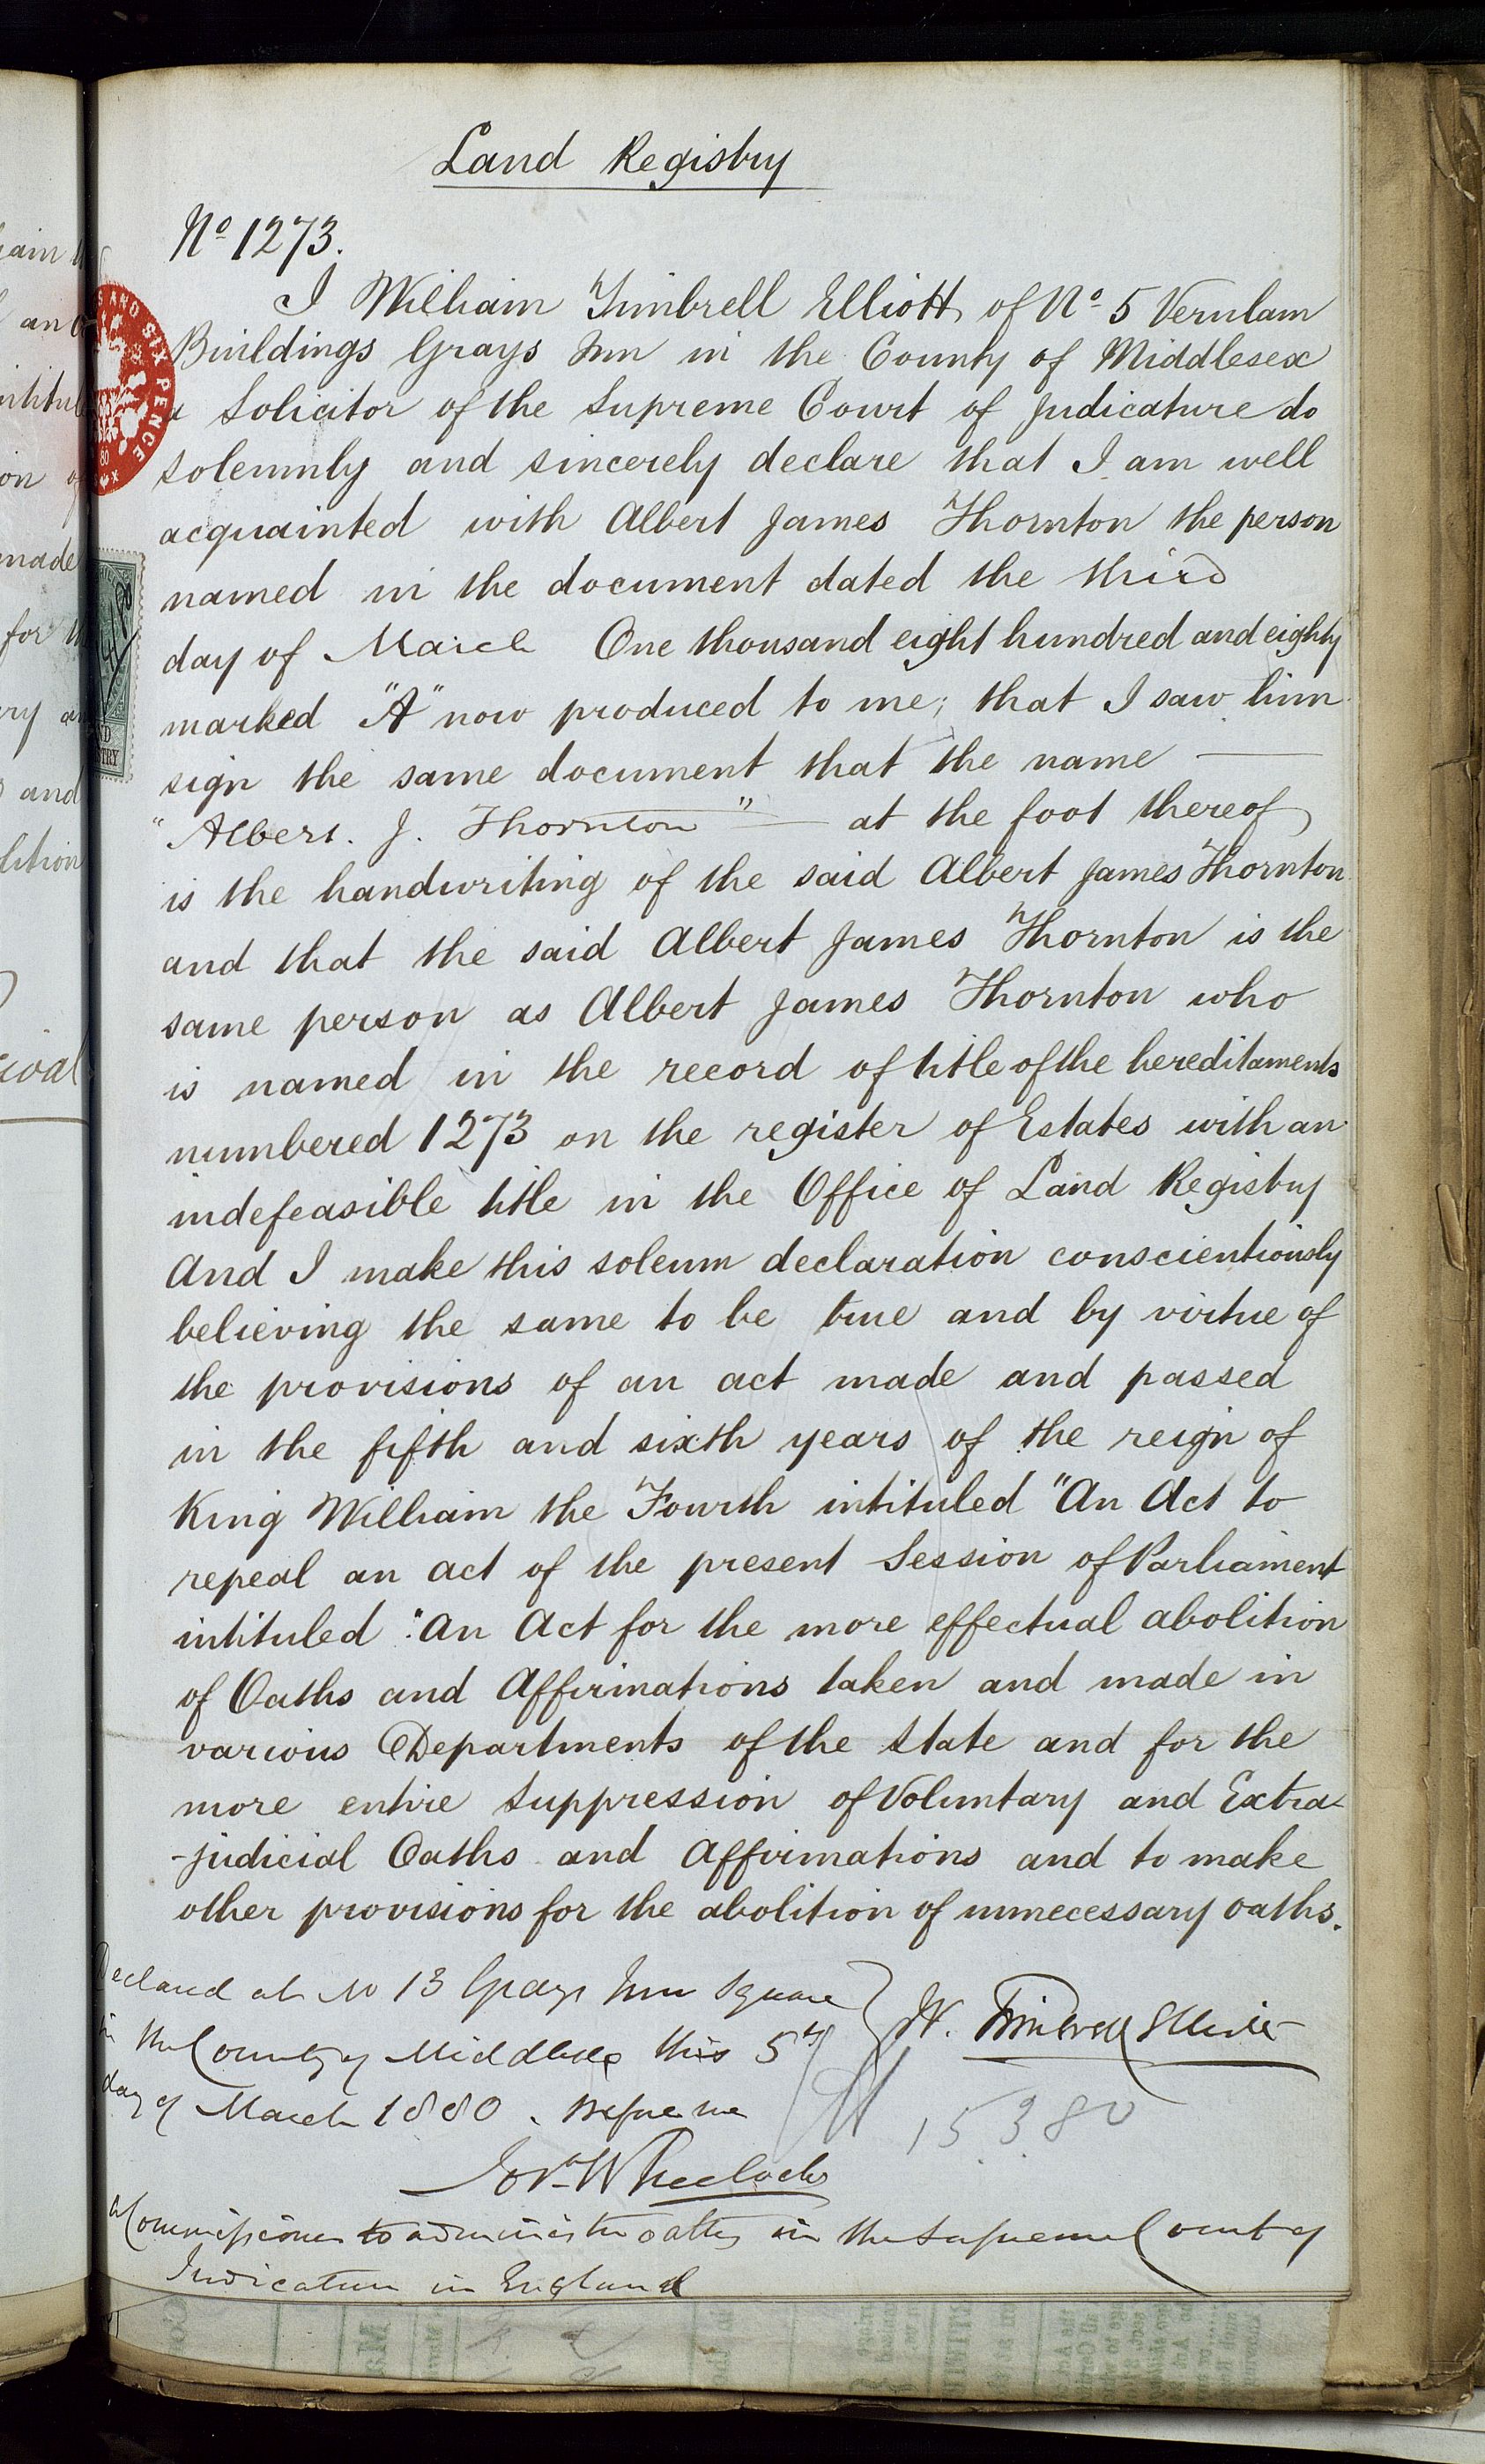 Land Registry
No 1273.
I William Timbrell Elliott of No 5 Verulam
Buildings Grays Inn in the County of Middlesex
a Solicitor of the Supreme Court of Judicature do
solemnly and sincerely declare that I am well
acquainted with Albert James Thornton the person
named in the document dated the third
day of March One thousand eight hundred and eighty
marked "A" now produced to me; that I saw him
sign the same document that the name
"Albert. J. Thornton" at the foot thereof
is the handwriting of the said Albert James Thornton
and that the said Albert James Thornton is the
same person as Albert James Thornton who
is named in the record of title of the hereditaments
numbered 1273 on the register of Estates with an
indefeasible title in the Office of Land Registry
And I make this solemn declaration conscientiously
believing the same to be true and by virtue of
the provisions of an act made and passed
in the fifth and sixth years of the reign of
King William the Fourth intituled "An Act to
repeal an act of the present Session of Parliament
intituled "An Act for the more effectual abolition
of Oaths and Affirmations taken and made in
various Departments of the State and for the
more entire Suppression of Voluntary and Extra
-judicial Oaths and Affirmations and to make
other provisions for the abolition of unnecessary oaths.
Declared at No 13 Grays Inn Square
in the County of Middlesex this 5th
day of March 1880. Before me
W. Timbrell Elliott
15380
Wheelocks
a Commissioner to administer oaths in the Supreme Court of
Judicature in England
AND SIX PENCE